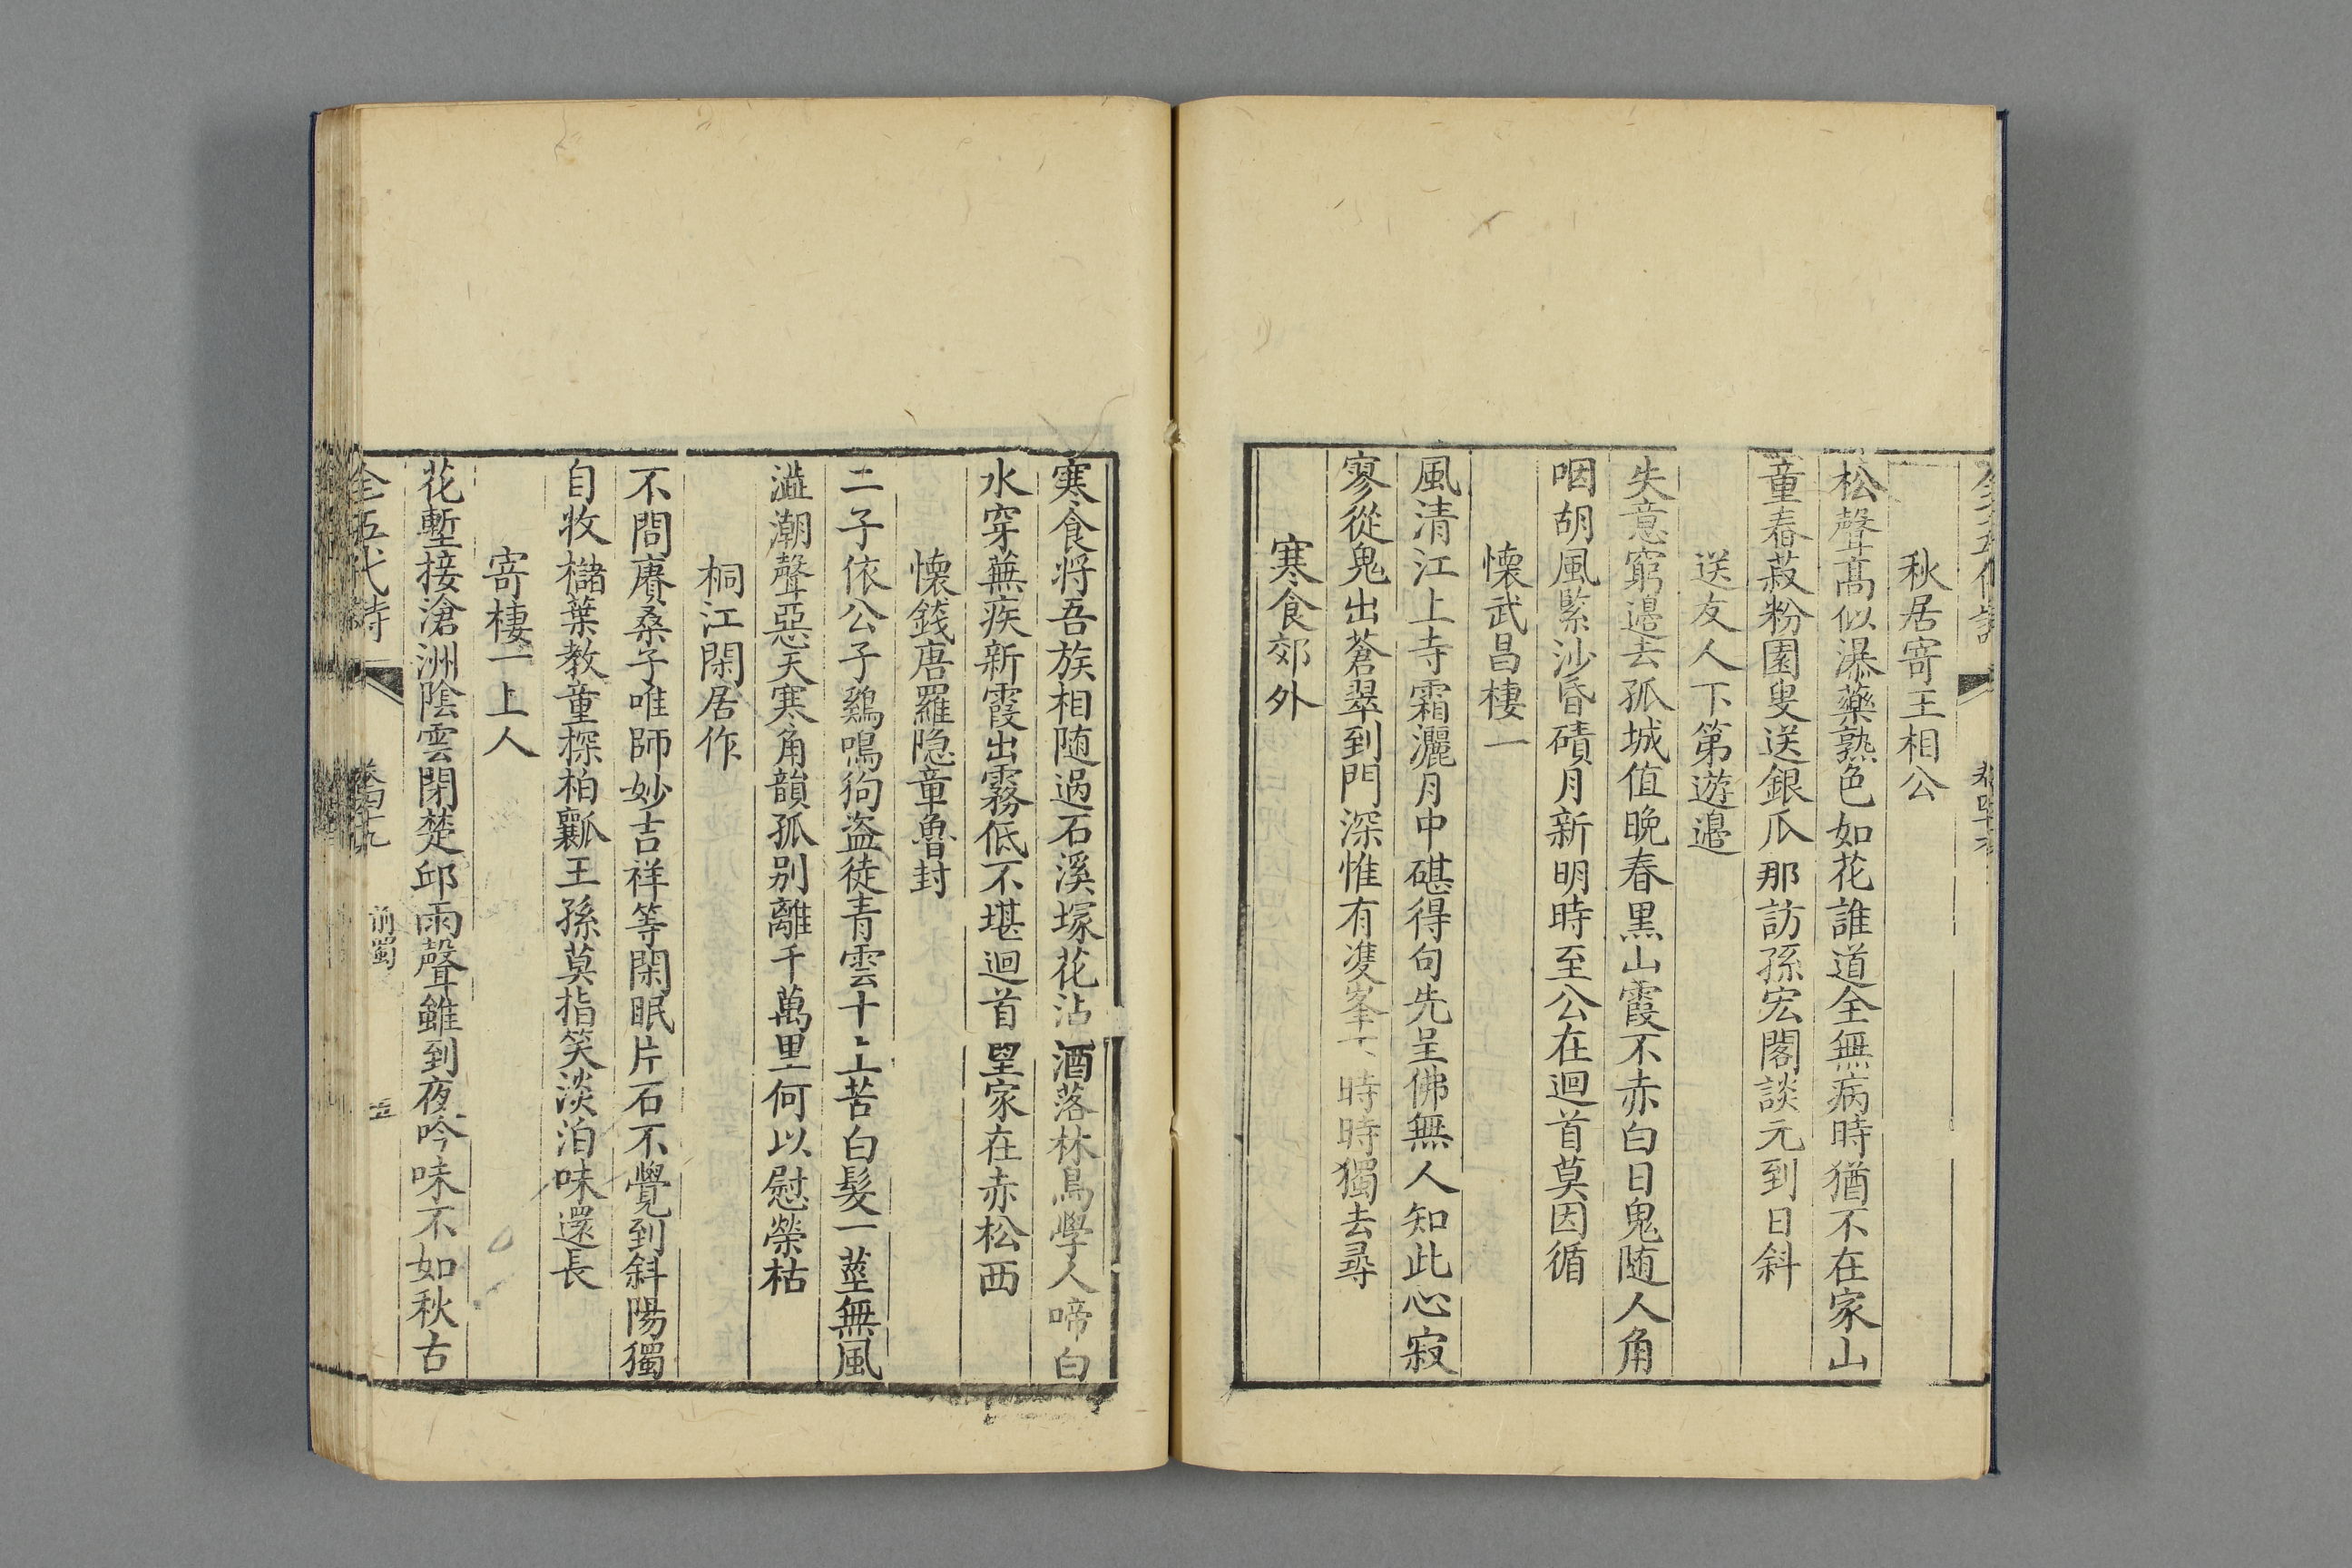 秋居寄王相公
松聲高似瀑藥熟色如花誰道全無病時猶不在家山
童舂菽粉園叟送銀瓜那訪孫宏閣談元到日斜
送友人下第遊邉
失意窮邉去孤城值晚春黒山霞不赤白日鬼随人角
咽胡風緊沙昏磧月新明時至公在迴首莫因循
懐武昌棲一
風清江上寺霜灑月中碪得句先呈佛無人知此心寂
寥從鬼出蒼翠到門深惟有㕠峯下時時獨去尋
寒食郊外
寒食将吾族相随過石溪塚花沾酒落林鳥學人啼白
水穿蕪疾新霞出霧低不堪迴首望家在赤松西
懐錢唐羅隐章魯封
二子依公子鷄鳴狗盗徒青雲十上苦白髮一莖無風
澁潮聲惡天寒角韻孤别離千萬里何以慰榮枯
桐江閑居作
不問賡桑子唯師妙吉祥等閑眠片石不覺到斜陽獨
自收櫧葉教童探柏瓤王孫莫指笑淡泊味還長
寄棲一上人
花塹接滄洲陰雲閉楚邱雨聲雖到夜吟味不如秋古
全五代詩 卷四十九 前蜀 五